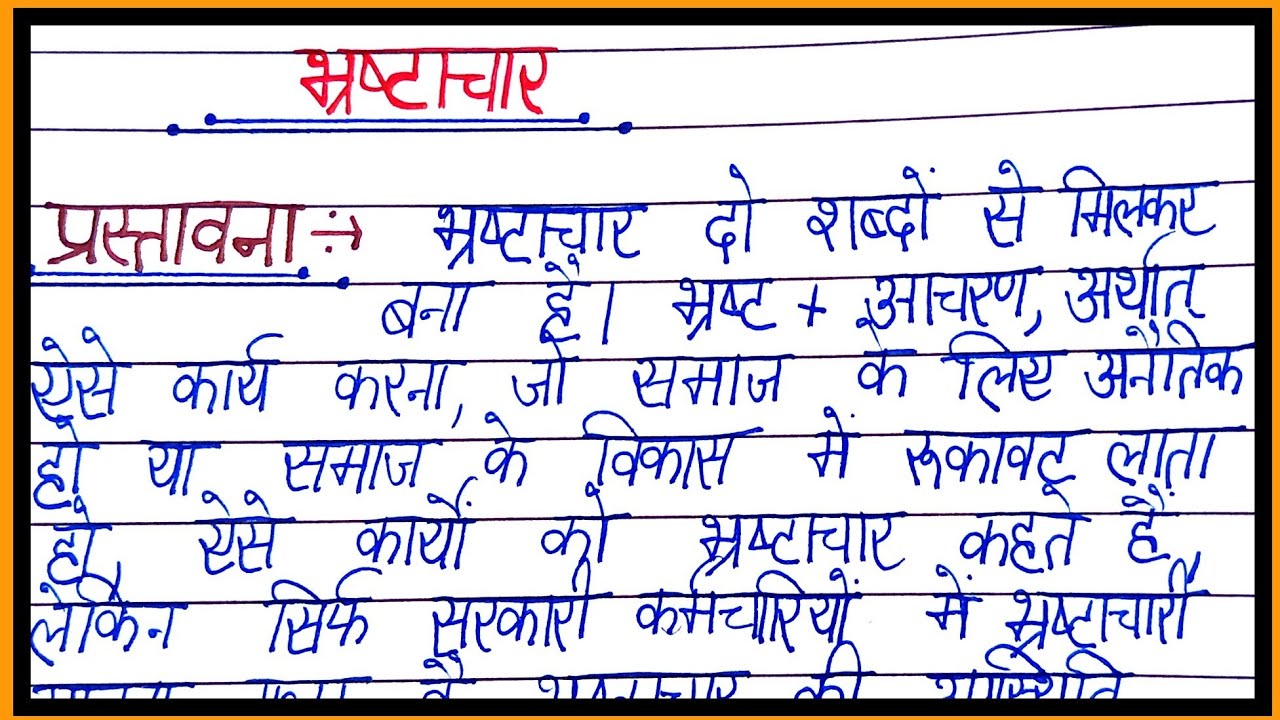 भ्रष्टाचार
प्रस्तावना :→ भ्रष्टाचार दो शब्दों से मिलकर
बना है। भ्रष्ट + आचरण, अर्थात्
ऐसे कार्य करना, जो समाज के लिए अनैतिक
हो या समाज के विकास में रूकावट लाता
हो, ऐसे कार्यों को भ्रष्टाचार कहते हैं,
लेकिन सिर्फ सरकारी कर्मचारियों में भ्रष्टाचारी
भ्रष्टाचार की